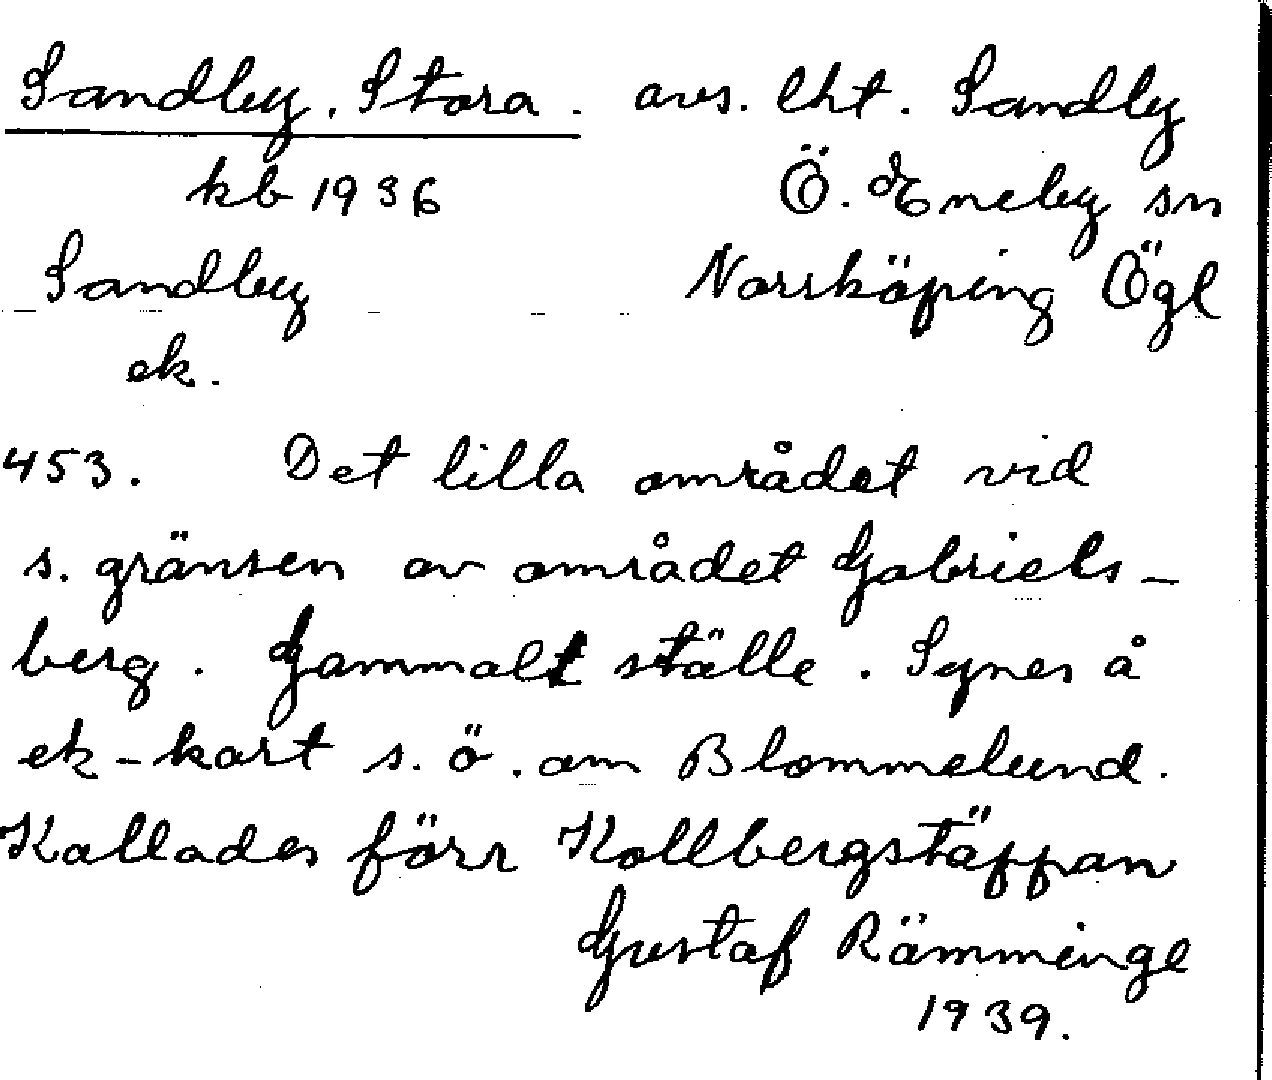 Sandby, Stora. avs. lht. Sandby
kb 1936 Ö. Eneby sn
Sandby Norrköping Ögl
ek.
453. Det lilla området vid
s. gränsen av området Gabriels-
berg. Gammalt ställe. Synes å
ek-kart s. ö. om Blommelund.
Kallades förr Kollbergstäppan
Gustaf Rämminge
1939.